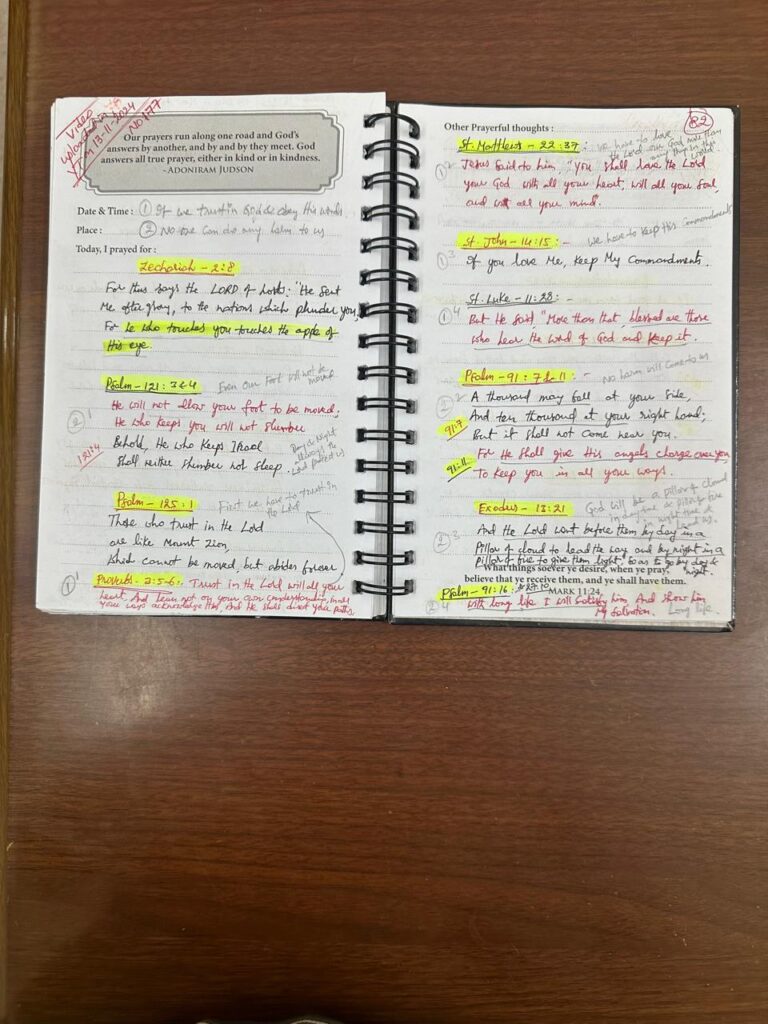 Video
uploaded in
YT on 13-11-2024
No 177
Our prayers run along one road and God's
answers by another, and by and by they meet. God
answers all true prayer, either in kind or in kindness.
- ADONIRAM JUDSON
Date & Time : ① If we trust in God & obey His words
Place : ② No one can do any harm to us
Today, I prayed for :
Zechariah - 2:8
For thus says the LORD of Hosts: "He sent
Me after glory, to the nations which plunder you,
For he who touches you touches the apple of
His eye.
Psalm - 121: 3 & 4 Even our foot will not be
moved
② 1 He will not allow your foot to be moved;
He who keeps you will not slumber
121:4 Behold, He who keeps Israel
Shall neither slumber not sleep.
Day & Night
always the
Lord protect us
Psalm - 125:1 First we have to trust in
the Lord
Those who trust in the Lord
are like Mount Zion,
Which cannot be moved, but abides forever.
① 1 Proverb - 3:5-6: Trust in the Lord with all your
heart And lean not on your own understanding, in all
your ways acknowledge Him, And He shall direct your paths.
Other Prayerful thoughts : 82
St. Matthew - 22:37 : we have to love
the Lord our God more than
any thing in this
world
① 2 Jesus said to him "You shall love the Lord
your God with all your heart, with all your soul,
and with all your mind".
St. John - 14:15 : - We have to keep His Commandments
① 3 If you love Me, keep My Commandments.
St. Luke - 11:28 : -
① 4 But He said, "More than that, blessed are those
who hear the word of God and keep it.
Psalm - 91: 7 & 11 : - No harm will come to us
② 2 A thousand may fall at your side,
91:7 And ten thousand at your right hand;
But it shall not come near you.
91:11 For He shall give His angels charge over you,
To keep you in all your ways.
Exodus - 13:21 God will be a pillar of cloud
in day time & pillar of fire
in night time &
lead us.
② 3 And the Lord went before them by day in a
Pillar of cloud to lead the way and by night in a
pillar of fire to give them light, so as to go by day &
night.
What things soever ye desire, when ye pray,
believe that ye receive them, and ye shall have them.
MARK 11:24
Psalm - 91:16 :
② 4 With long life I will satisfy him And show him
My Salvation. Long life